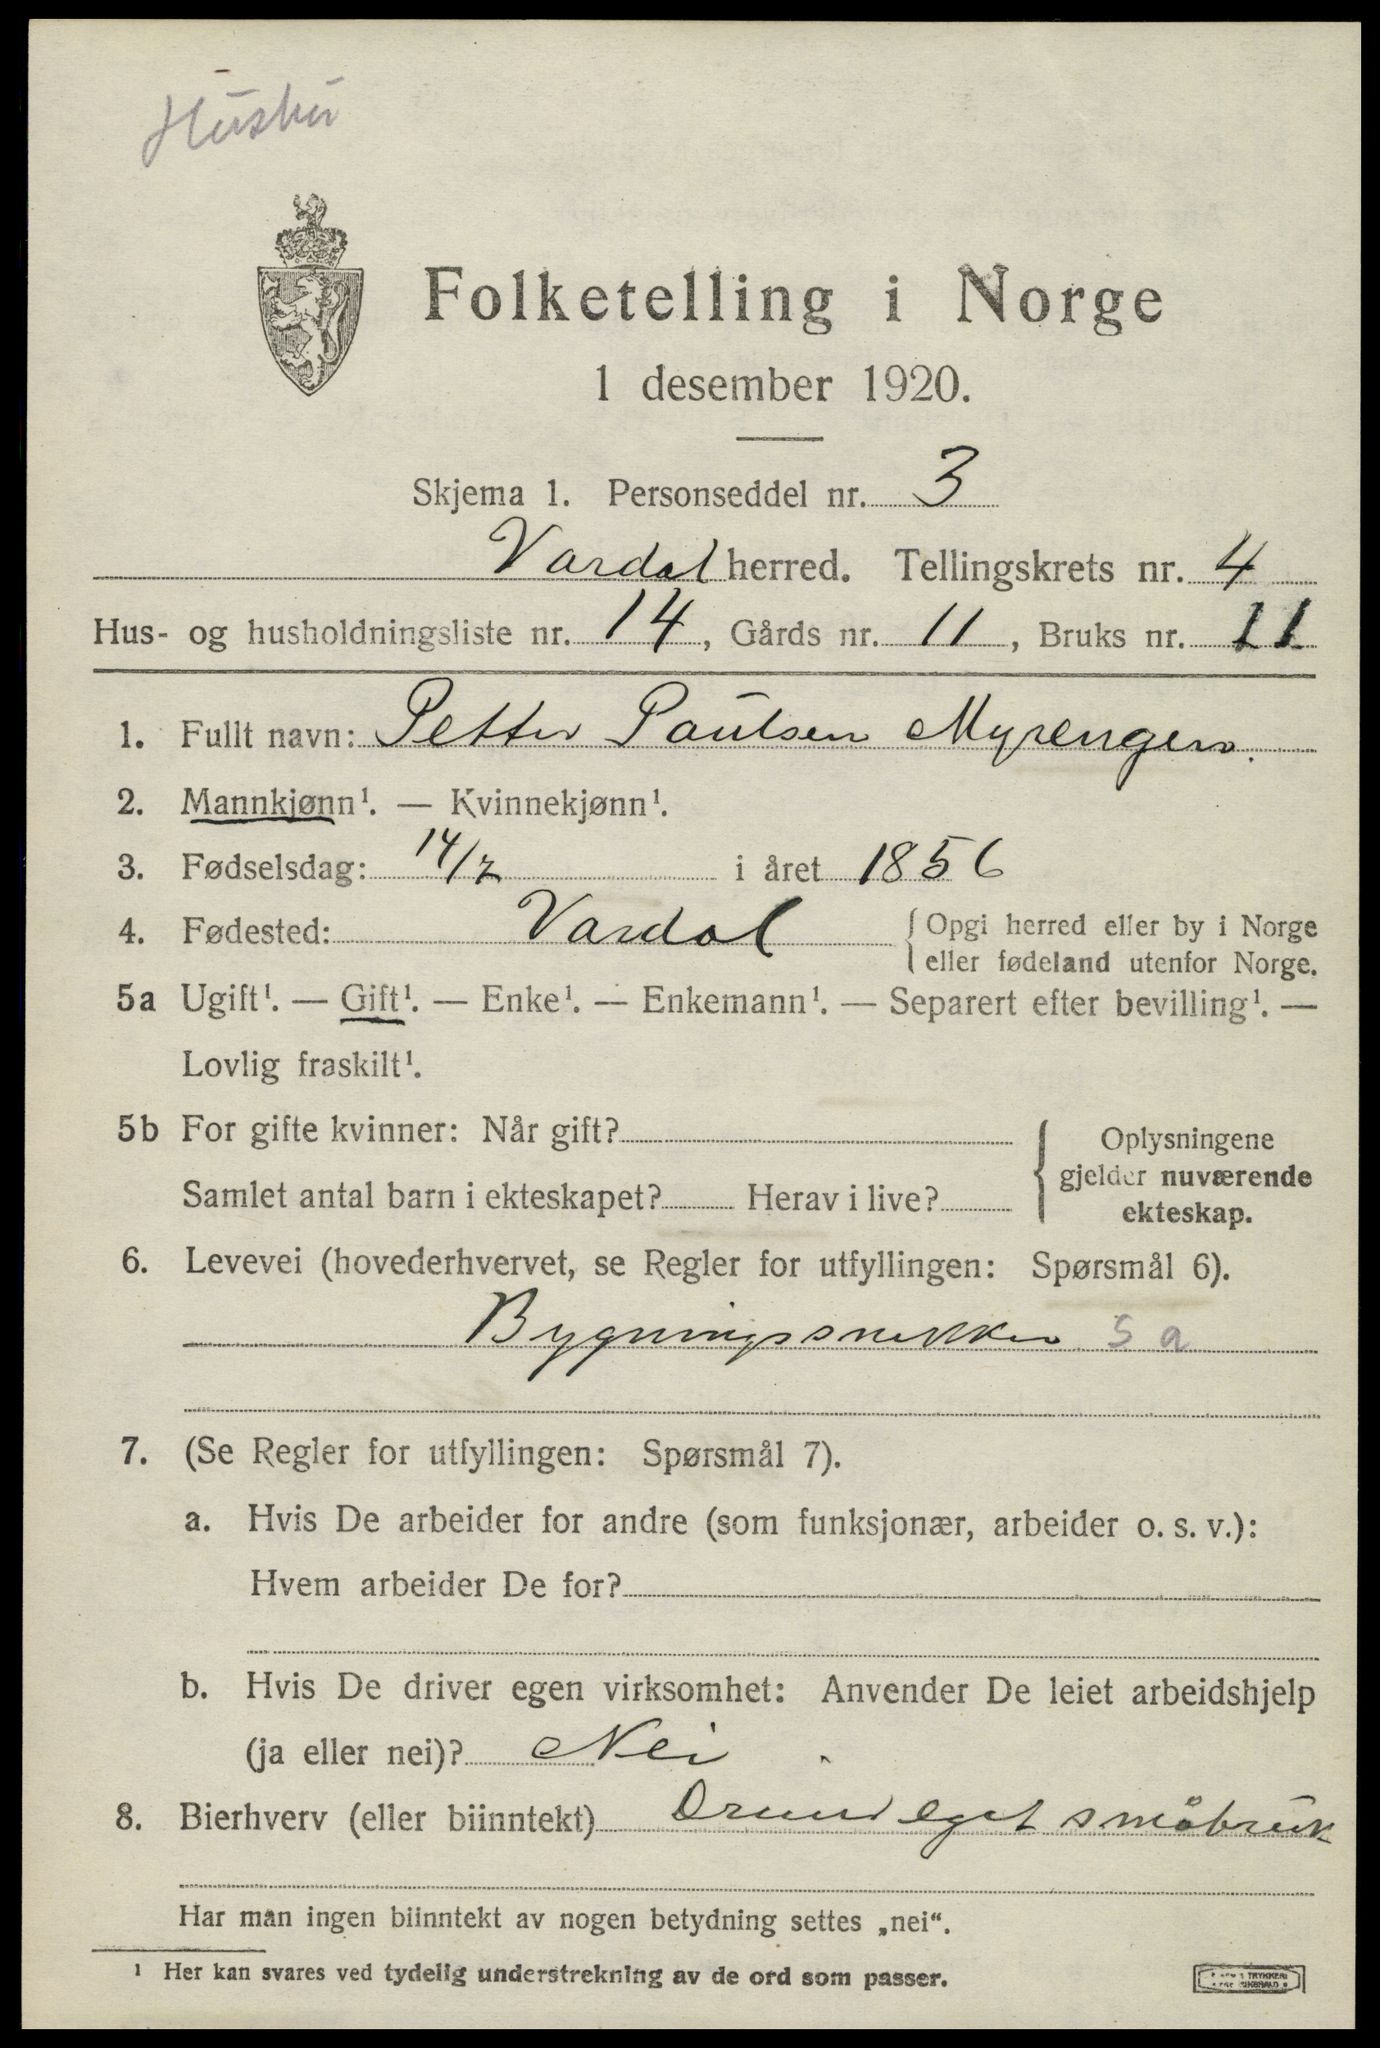 Husbu
Folketelling i Norge
1 desember 1920.
Skjema 1. Personseddel nr. 3
Vardal herred. Tellingskrets nr. 4
Hus- og husholdningsliste nr. 14, Gårds nr. 11, Bruks nr. 11
1. Fullt navn: Petter Paulsen Myrengen.
2. Mannkjønn¹. — Kvinnekjønn¹.
3. Fødselsdag: 14/7 i året 1856
4. Fødested: Vardal {Opgi herred eller by i Norge
eller fødeland utenfor Norge.
5a Ugift¹. — Gift¹. — Enke¹. — Enkemann¹. — Separert efter bevilling¹. —
Lovlig fraskilt¹.
5b For gifte kvinner: Når gift?
Samlet antal barn i ekteskapet? Herav i live?
{Oplysningene
gjelder nuværende
ekteskap.
6. Levevei (hovederhvervet, se Regler for utfyllingen: Spørsmål 6).
Bygningssnekker 5 a
7. (Se Regler for utfyllingen: Spørsmål 7).
a. Hvis De arbeider for andre (som funksjonær, arbeider o. s. v.):
Hvem arbeider De for?
b. Hvis De driver egen virksomhet: Anvender De leiet arbeidshjelp
(ja eller nei)? Nei
8. Bierhverv (eller biinntekt) eget småbruk
Har man ingen biinntekt av nogen betydning settes „nei“.
¹ Her kan svares ved tydelig understrekning av de ord som passer.